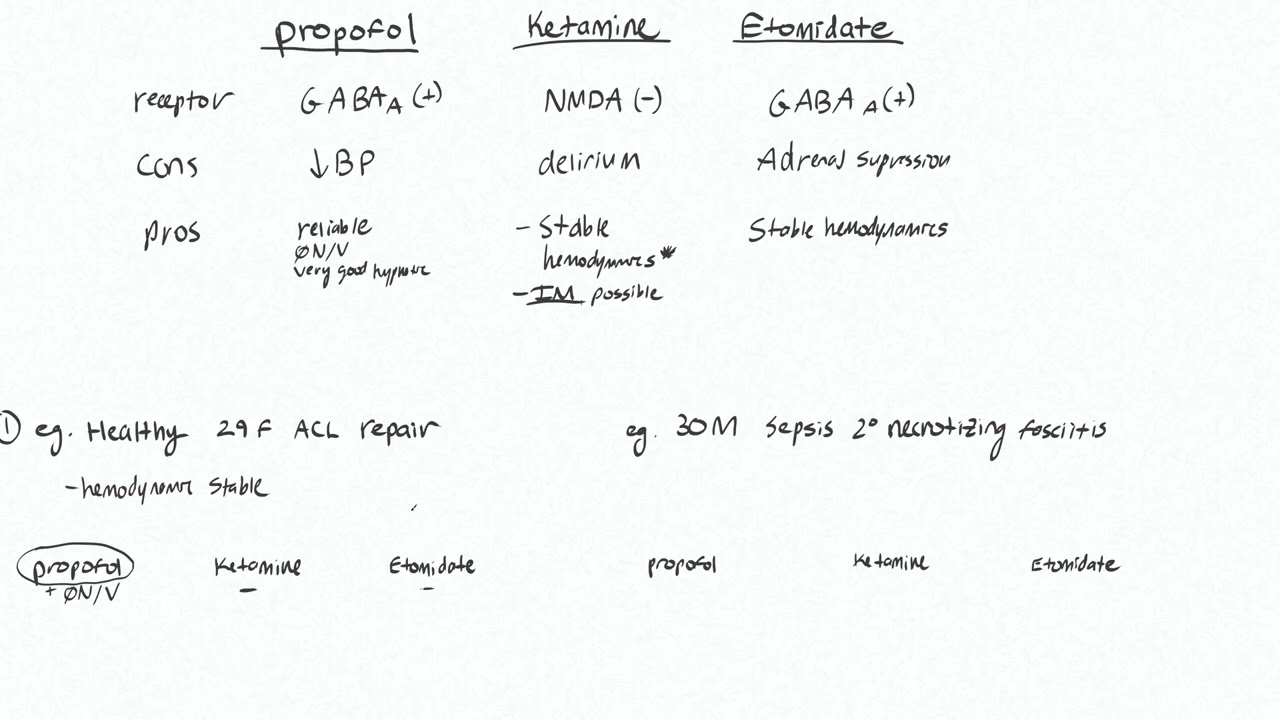 propofol Ketamine Etomidate
receptor GABA A (+) NMDA (-) GABA A (+)
Cons ↓BP delirium Adrenal supression
pros reliable - Stable Stable hemodynamics
ØN/V hemodynamics*
very good hypnotic - IM possible
① eg. Healthy 29F ACL repair eg. 30M Sepsis 2° necrotizing fasciitis
- hemodynamic stable
propofol Ketamine Etomidate propofol Ketamine Etomidate
+ ØN/V - -